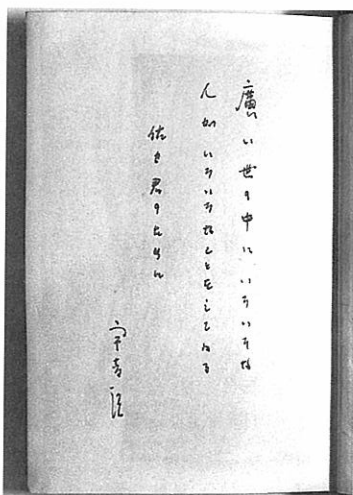 廣い世の中にいろいろな
人がいろいろなことをしてゐる
佐 君のために
宇吉郎